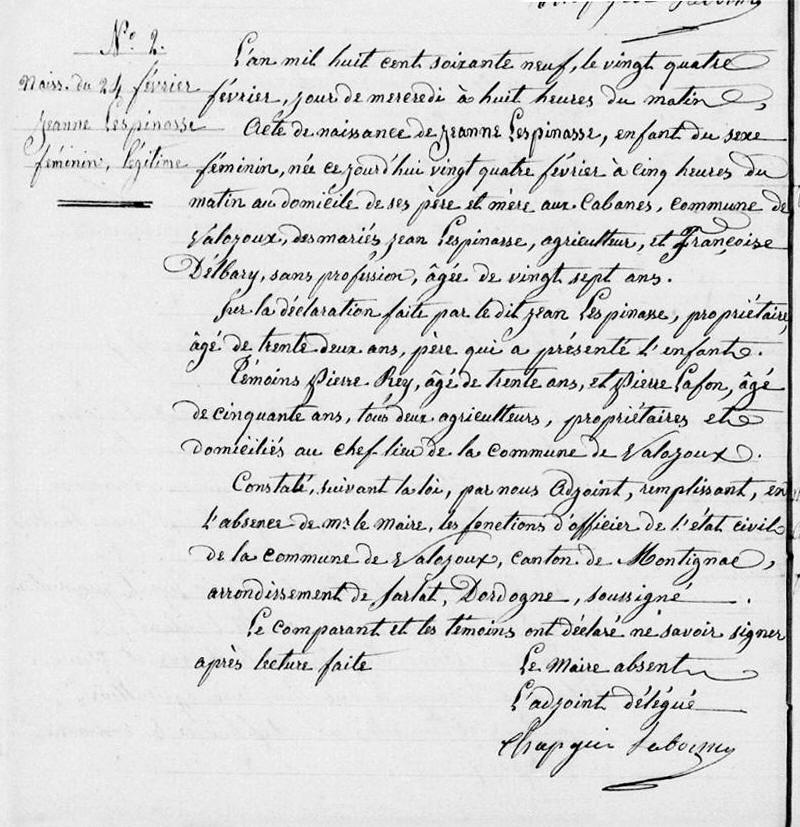 N° 2.
Naiss. du 24 février
Jeanne Lespinasse
féminin, légitime
L'an mil huit cent soixante neuf, le vingt quatre
février, jour de mercredi à huit heures du matin,
Acte de naissance de Jeanne Lespinasse, enfant du sexe
féminin, née ce jourd'hui vingt quatre février à cinq heures du
matin au domicile de ses père et mère aux Cabanes, commune de
Valojoux, des mariés Jean Lespinasse, agriculteur, et Françoise
Délbary, sans profession, âgée de vingt sept ans.
Sur la déclaration faite par le dit Jean Lespinasse, propriétaire,
âgé de trente deux ans, père qui a présenté l'enfant.
Témoins Pierre Rey, âgé de trente ans, et Pierre Lafon, âgé
de cinquante ans, tous deux agriculteurs, propriétaires et
domiciliés au chef lieu de la commune de Valojoux.
Constaté, suivant la loi, par nous Adjoint, remplissant, en
l'absence de mr. le Maire, les fonctions d'officier de l'état civil
de la commune de Valojoux, canton de Montignac,
arrondissement de Sarlat, Dordogne, soussigné.
Le comparant et les témoins ont déclaré ne savoir signer
après lecture faite
Le Maire absent
L'adjoint délégué